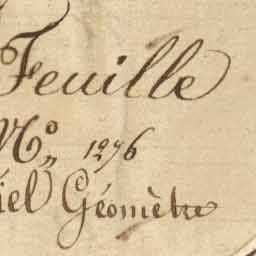 Feuille
N° 1276
iel Géomètre